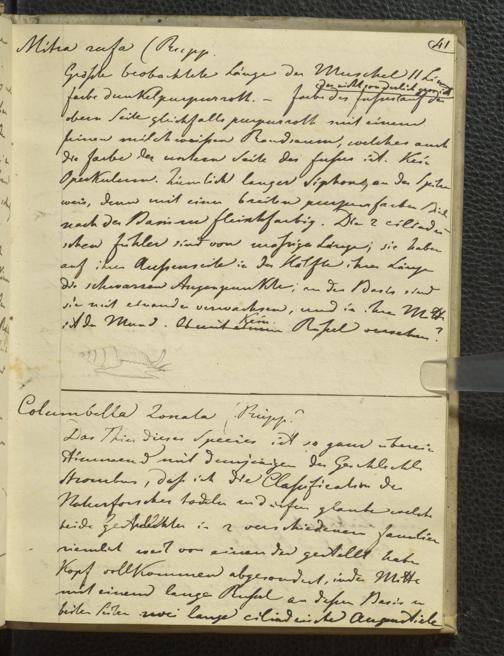 41
Mitra rufa (Rüpp.
Größte beobachtete Länge der Muschel 11 Lin
der nicht sonderlich groß ist
farbe dunkelpurpurroth. – farbe des fußes auf der
obern Seite gleichfalls purpurroth mit einem
feinen milchweißen Randsaum, welches auch
die farbe der untern Seite des fußes ist. Kein
Operkulum. Ziemlich langer Siphon, an der Spitze
weis, dann mit einer breiten purpurfarben
nach der Basis zu fleischfarbig. Die 2 cilindri-
schen fühler sind von mäßiger Länge; sie haben
auf ihrer Außenseite in der Hälfte ihrer Länge
die schwarzen Augenpunkte; an der Basis sind
sie mit einander verwachsen, und in ihrer Mitte
ist der Mund. Ob mit einem Rüßel versehen?
Columbella zonata (Rüpp.)
Das Thier dieser Species ist so ganz überein
stimmend mit demjenigen des Geschlechts
Strombus, daß ich die Classification der
Naturforscher tadeln zu dürfen glaube welche
beide Geschlechter in 2 verschiedenen familien
ziemlich weit von einander gestellt haben
Kopf vollkommen abgesondert, in der Mitte
mit einem langen Rüßel an dessen Basis zu
beiden Seiten zwei lange cilindrische Augenstiele